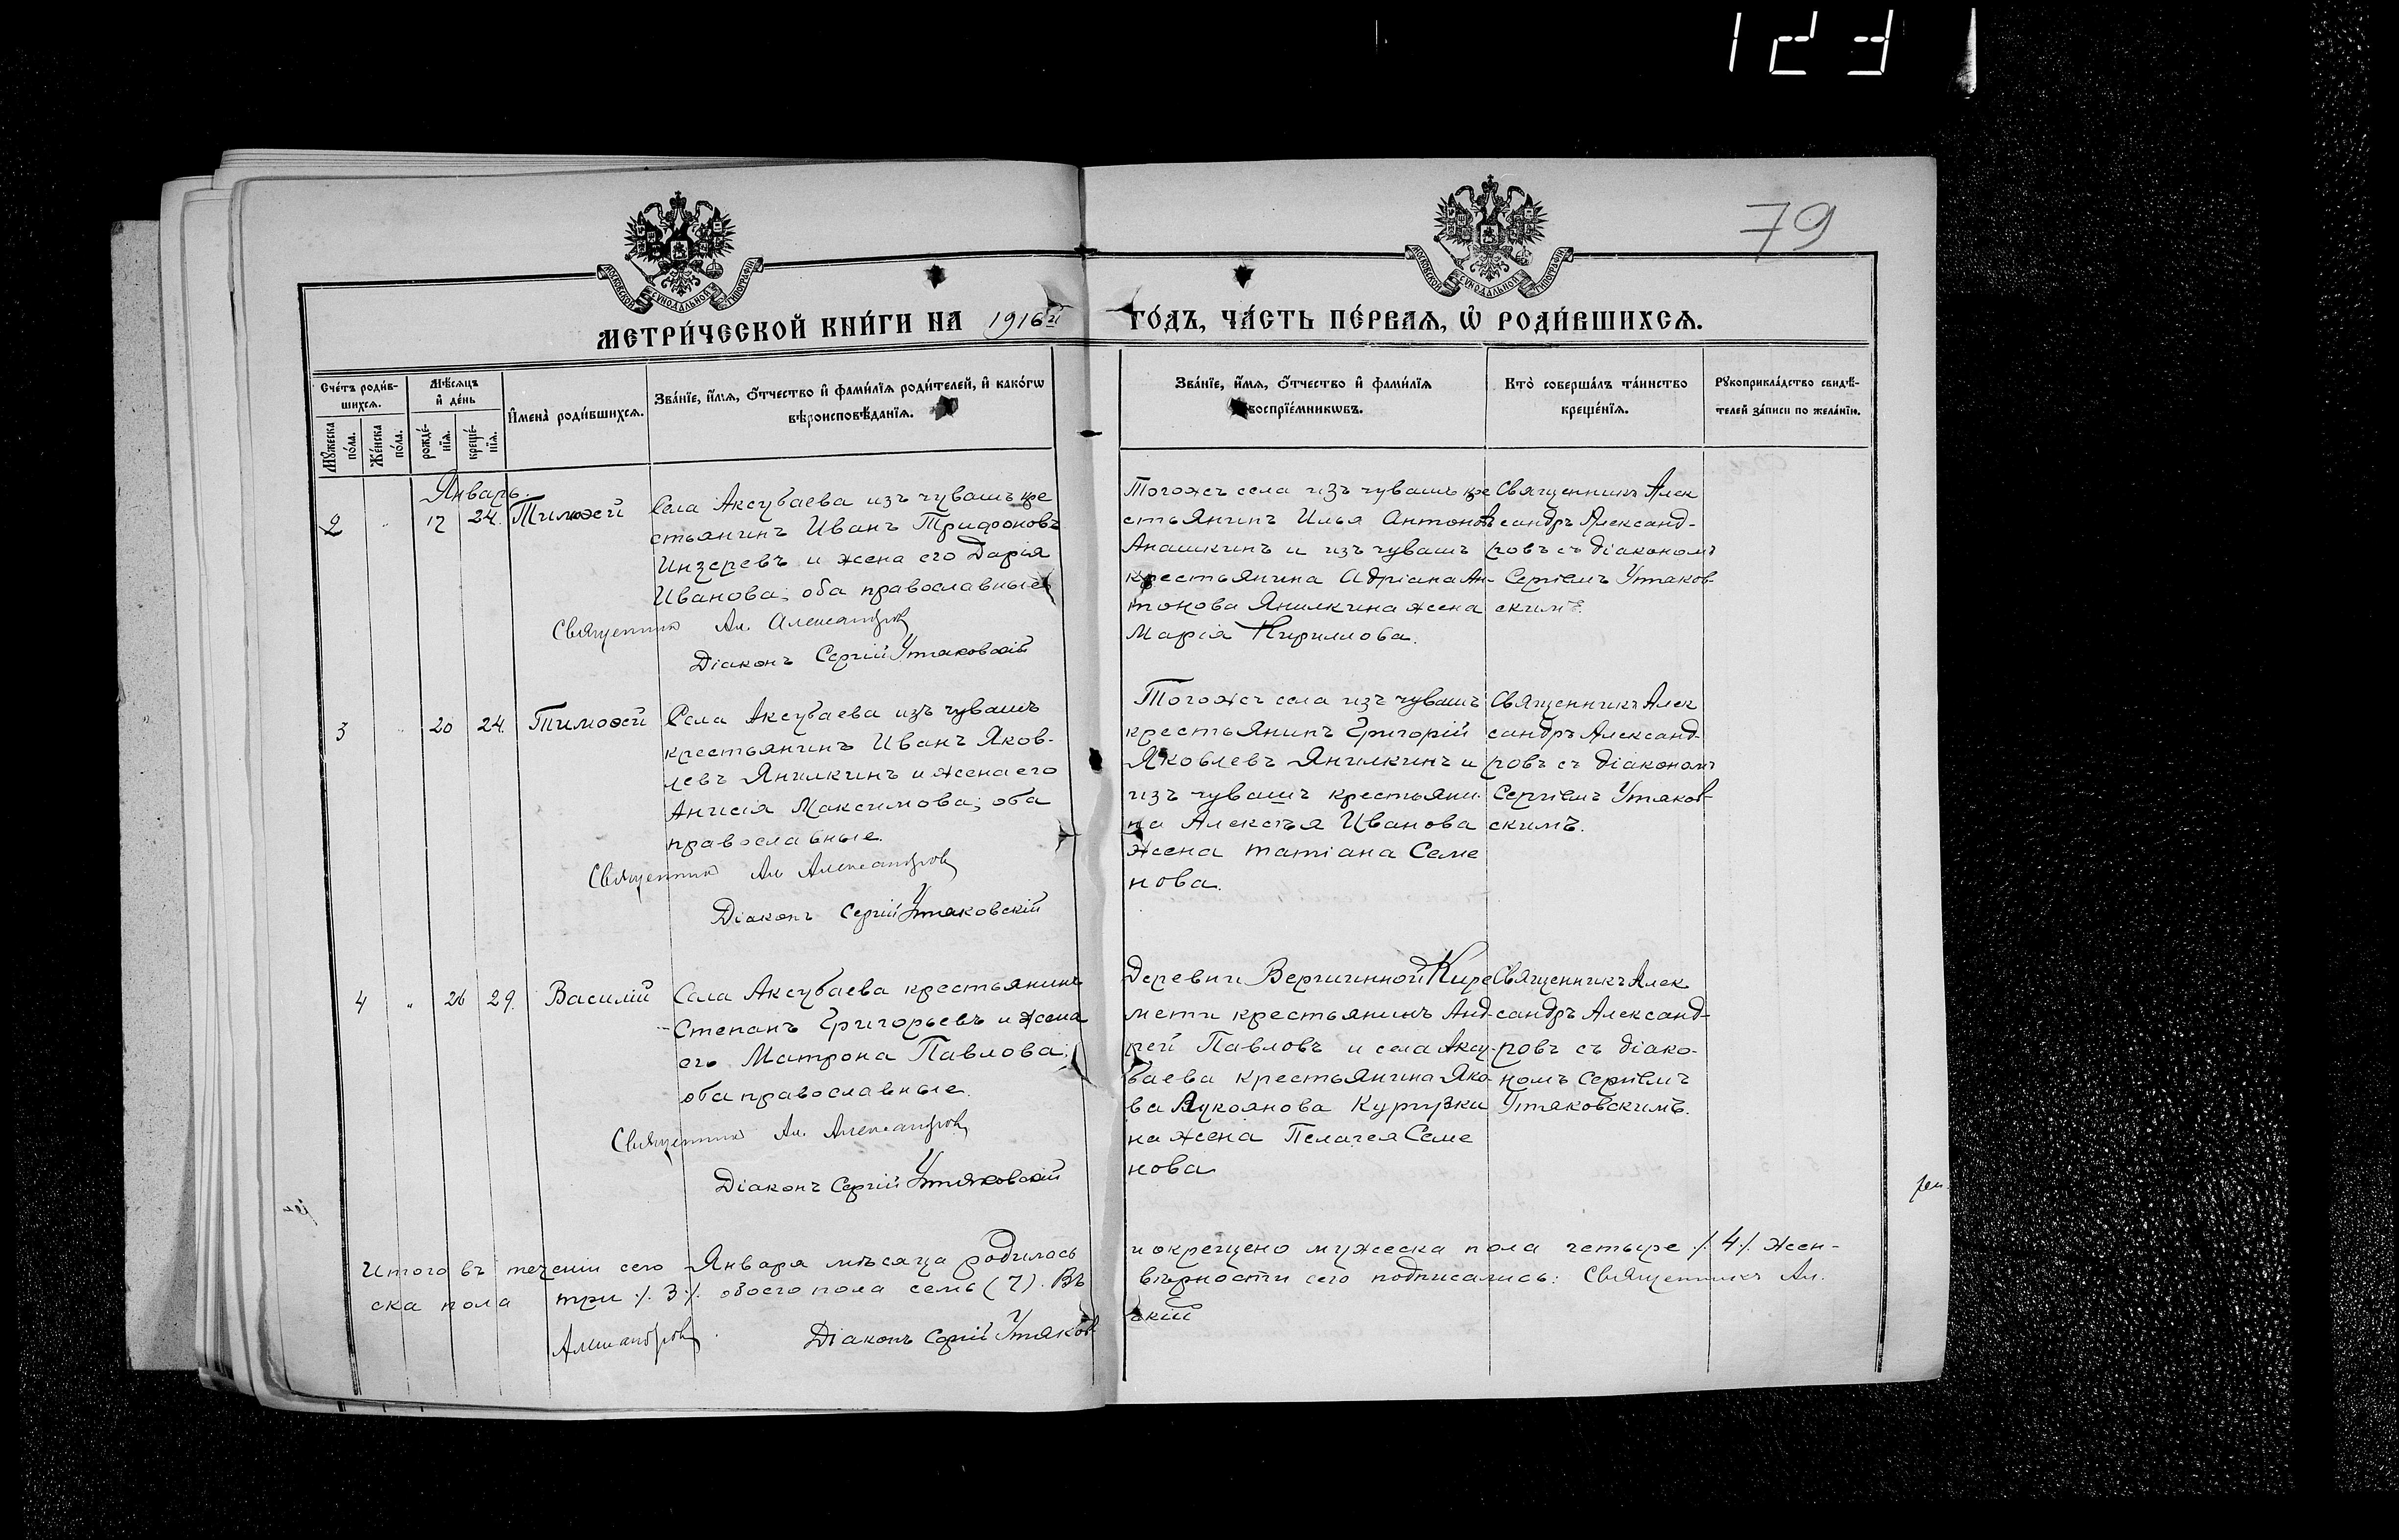 1231
79
МОСКОВСКОЙ СѴНОДАЛЬНОЙ ТИПОГРАФІИ
МОСКОВСКОЙ СѴНОДАЛЬНОЙ ТИПОГРАФІИ
МЕТРИ́ЧЕСКОЙ КНИ́ГИ НА 1916й ГО́ДЪ, ЧА́СТЬ ПЕ́РВАЯ, Ѡ РОДИ́ВШИХСЯ.
Сче́тъ роди́в-
шихся.
Мꙋ́жеска по́ла.
Же́нска по́ла.
Мѣ́сяцъ и҆ де́нь
рожде́-
нїя.
креще́-
нїя.
И҆мена̀ роди́вшихся.
Зва́нїе, и҆́мя, ѻ҆́тчество и҆ фами́лїя роди́телей, и҆ како́гѡ
вѣроисповѣ́данїя.
Зва́нїе, и҆́мя, ѻ҆́тчество и҆ фами́лїя
воспрїе́мникѡвъ.
Кто̀ соверша́лъ та́инство
креще́нїя.
Рꙋкоприкла́дство свидѣ́-
телей за́писи по жела́нїю.
Январь.
2 " 17 24. Тимоѳей
Села Аксубаева изъ чувашъ кре
стьянинъ Иванъ Трифоновъ
Инзеревъ и жена его Дарія
Иванова; оба православные
Священник Ал. Александров
Діаконъ Сергій Утяковскій
Тогоже села изъ чувашъ кре
стьянинъ Илья Антоновъ
Анашкинъ и изъ чувашъ
крестьянина Адріана Ан-
тонова Янилкина жена
Марія Кириллова.
Священникъ Алек
сандръ Александ-
ровъ съ діакономъ
Сергіемъ Утяков-
скимъ.
3 " 20 24. Тимоѳей
Села Аксубаева изъ чувашъ
крестьянинъ Иванъ Яков-
левъ Янилкинъ и жена его
Анисія Максимова; оба
православные.
Священник Ал Александров
Діаконъ Сергій Утяковскій
Тогоже села изъ чувашъ
крестьянинъ Григорій
Яковлевъ Янилкинъ и
изъ чувашъ крестьяни-
на Алексѣя Иванова
жена Татіана Семе
нова.
Священникъ Алек
сандръ Александ-
ровъ съ діакономъ
Сергіемъ Утяков-
скимъ.
4 " 26 29. Василій
Села Аксубаева крестьянинъ
Степанъ Григорьевъ и жена
его Матрона Павлова;
оба православные.
Священник Ал. Александров
Діаконъ Сергій Утяковскій
Деревни Вершинной Кире
мети крестьянинъ Анд-
рей Павловъ и села Аксу-
баева крестьянина Яко-
ва Лукоянова Курузки
на жена Пелагея Семе
нова
Священникъ Алек
сандръ Александ-
ровъ съ діако-
номъ Сергіемъ
Утяковскимъ.
Итого въ теченіи сего Января мѣсяца родилось и окрещено мужеска пола четыре /. 4 /. жен-
ска пола три /. 3 /. обоего пола семь (7). Въ вѣрности сего подписались: Священникъ Ал.
Александров Діаконъ Сергій Утяковскій